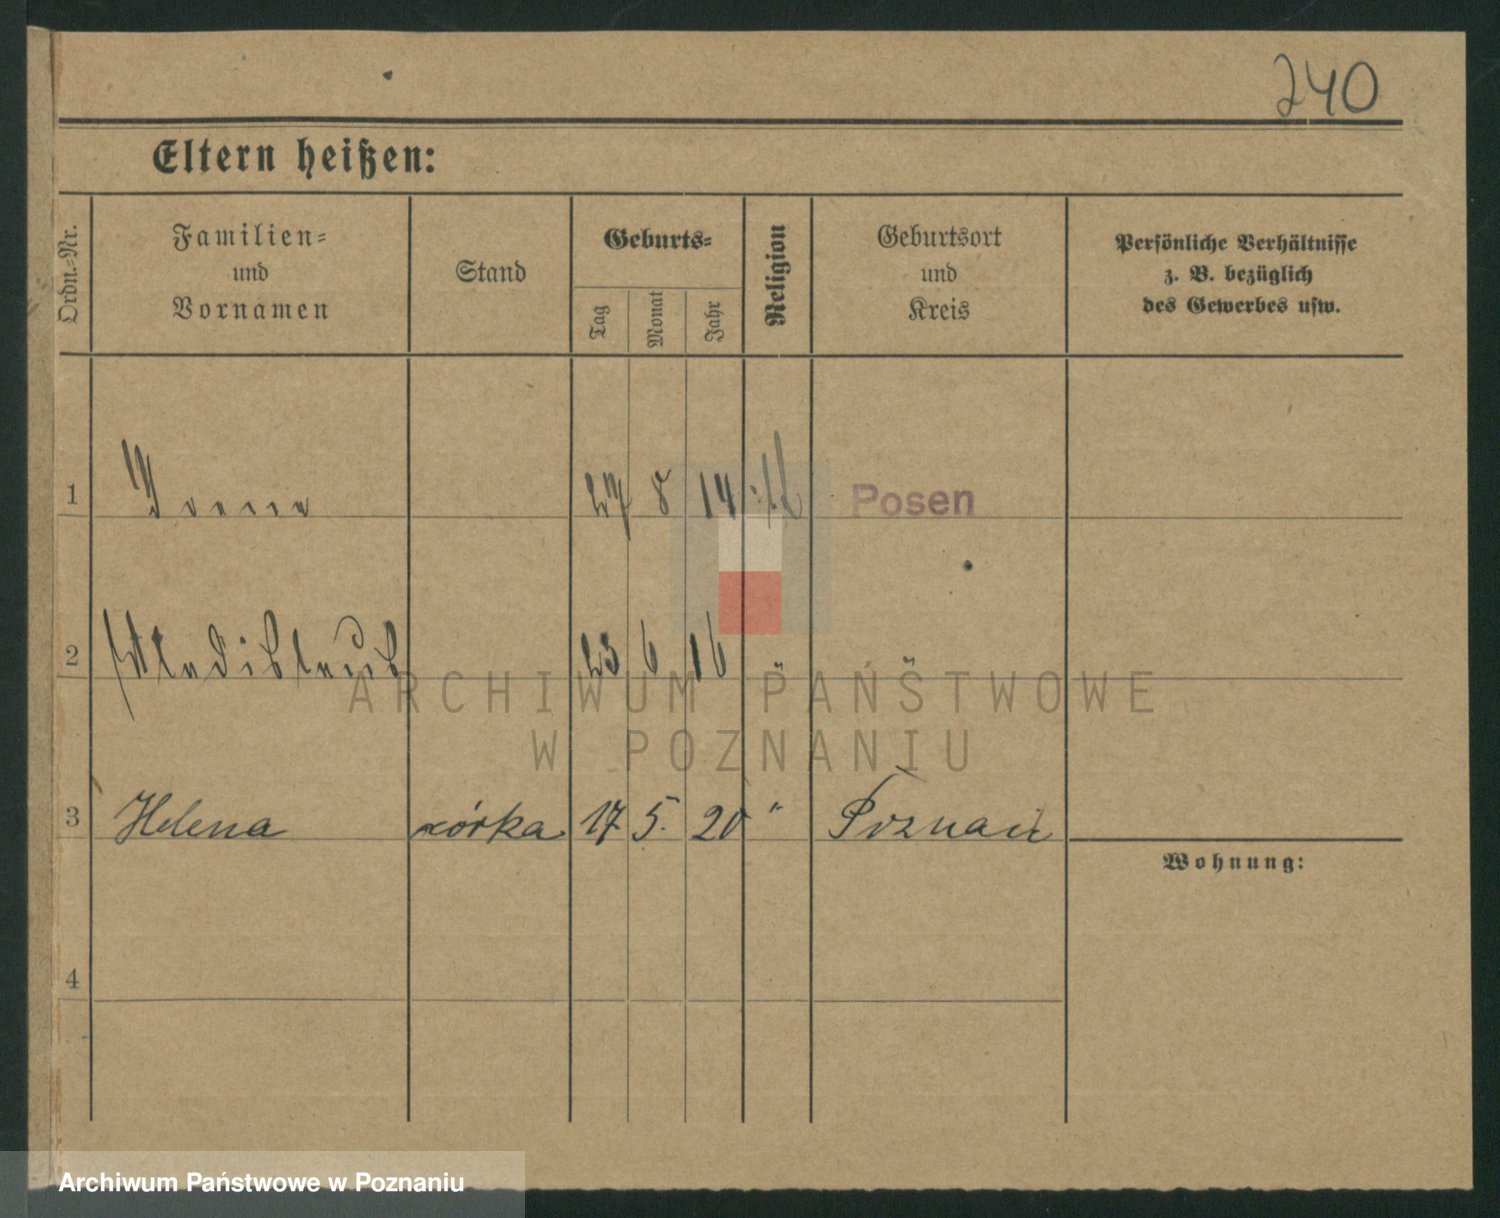 240
Eltern heißen:
Ordn.-Nr.
Familien-
und
Vornamen
Stand
Geburts-
Tag
Monat
Jahr
Religion
Geburtsort
und
Kreis
Persönliche Verhältnisse
z. B. bezüglich
des Gewerbes usw.
1 27 8 14 Posen
2 Wladislaus 23 6 16 "
ARCHIWUM PAŃSTWOWE
W POZNANIU
3 Helena córka 17 5. 20 " Poznań
Wohnung:
4
Archiwum Państwowe w Poznaniu